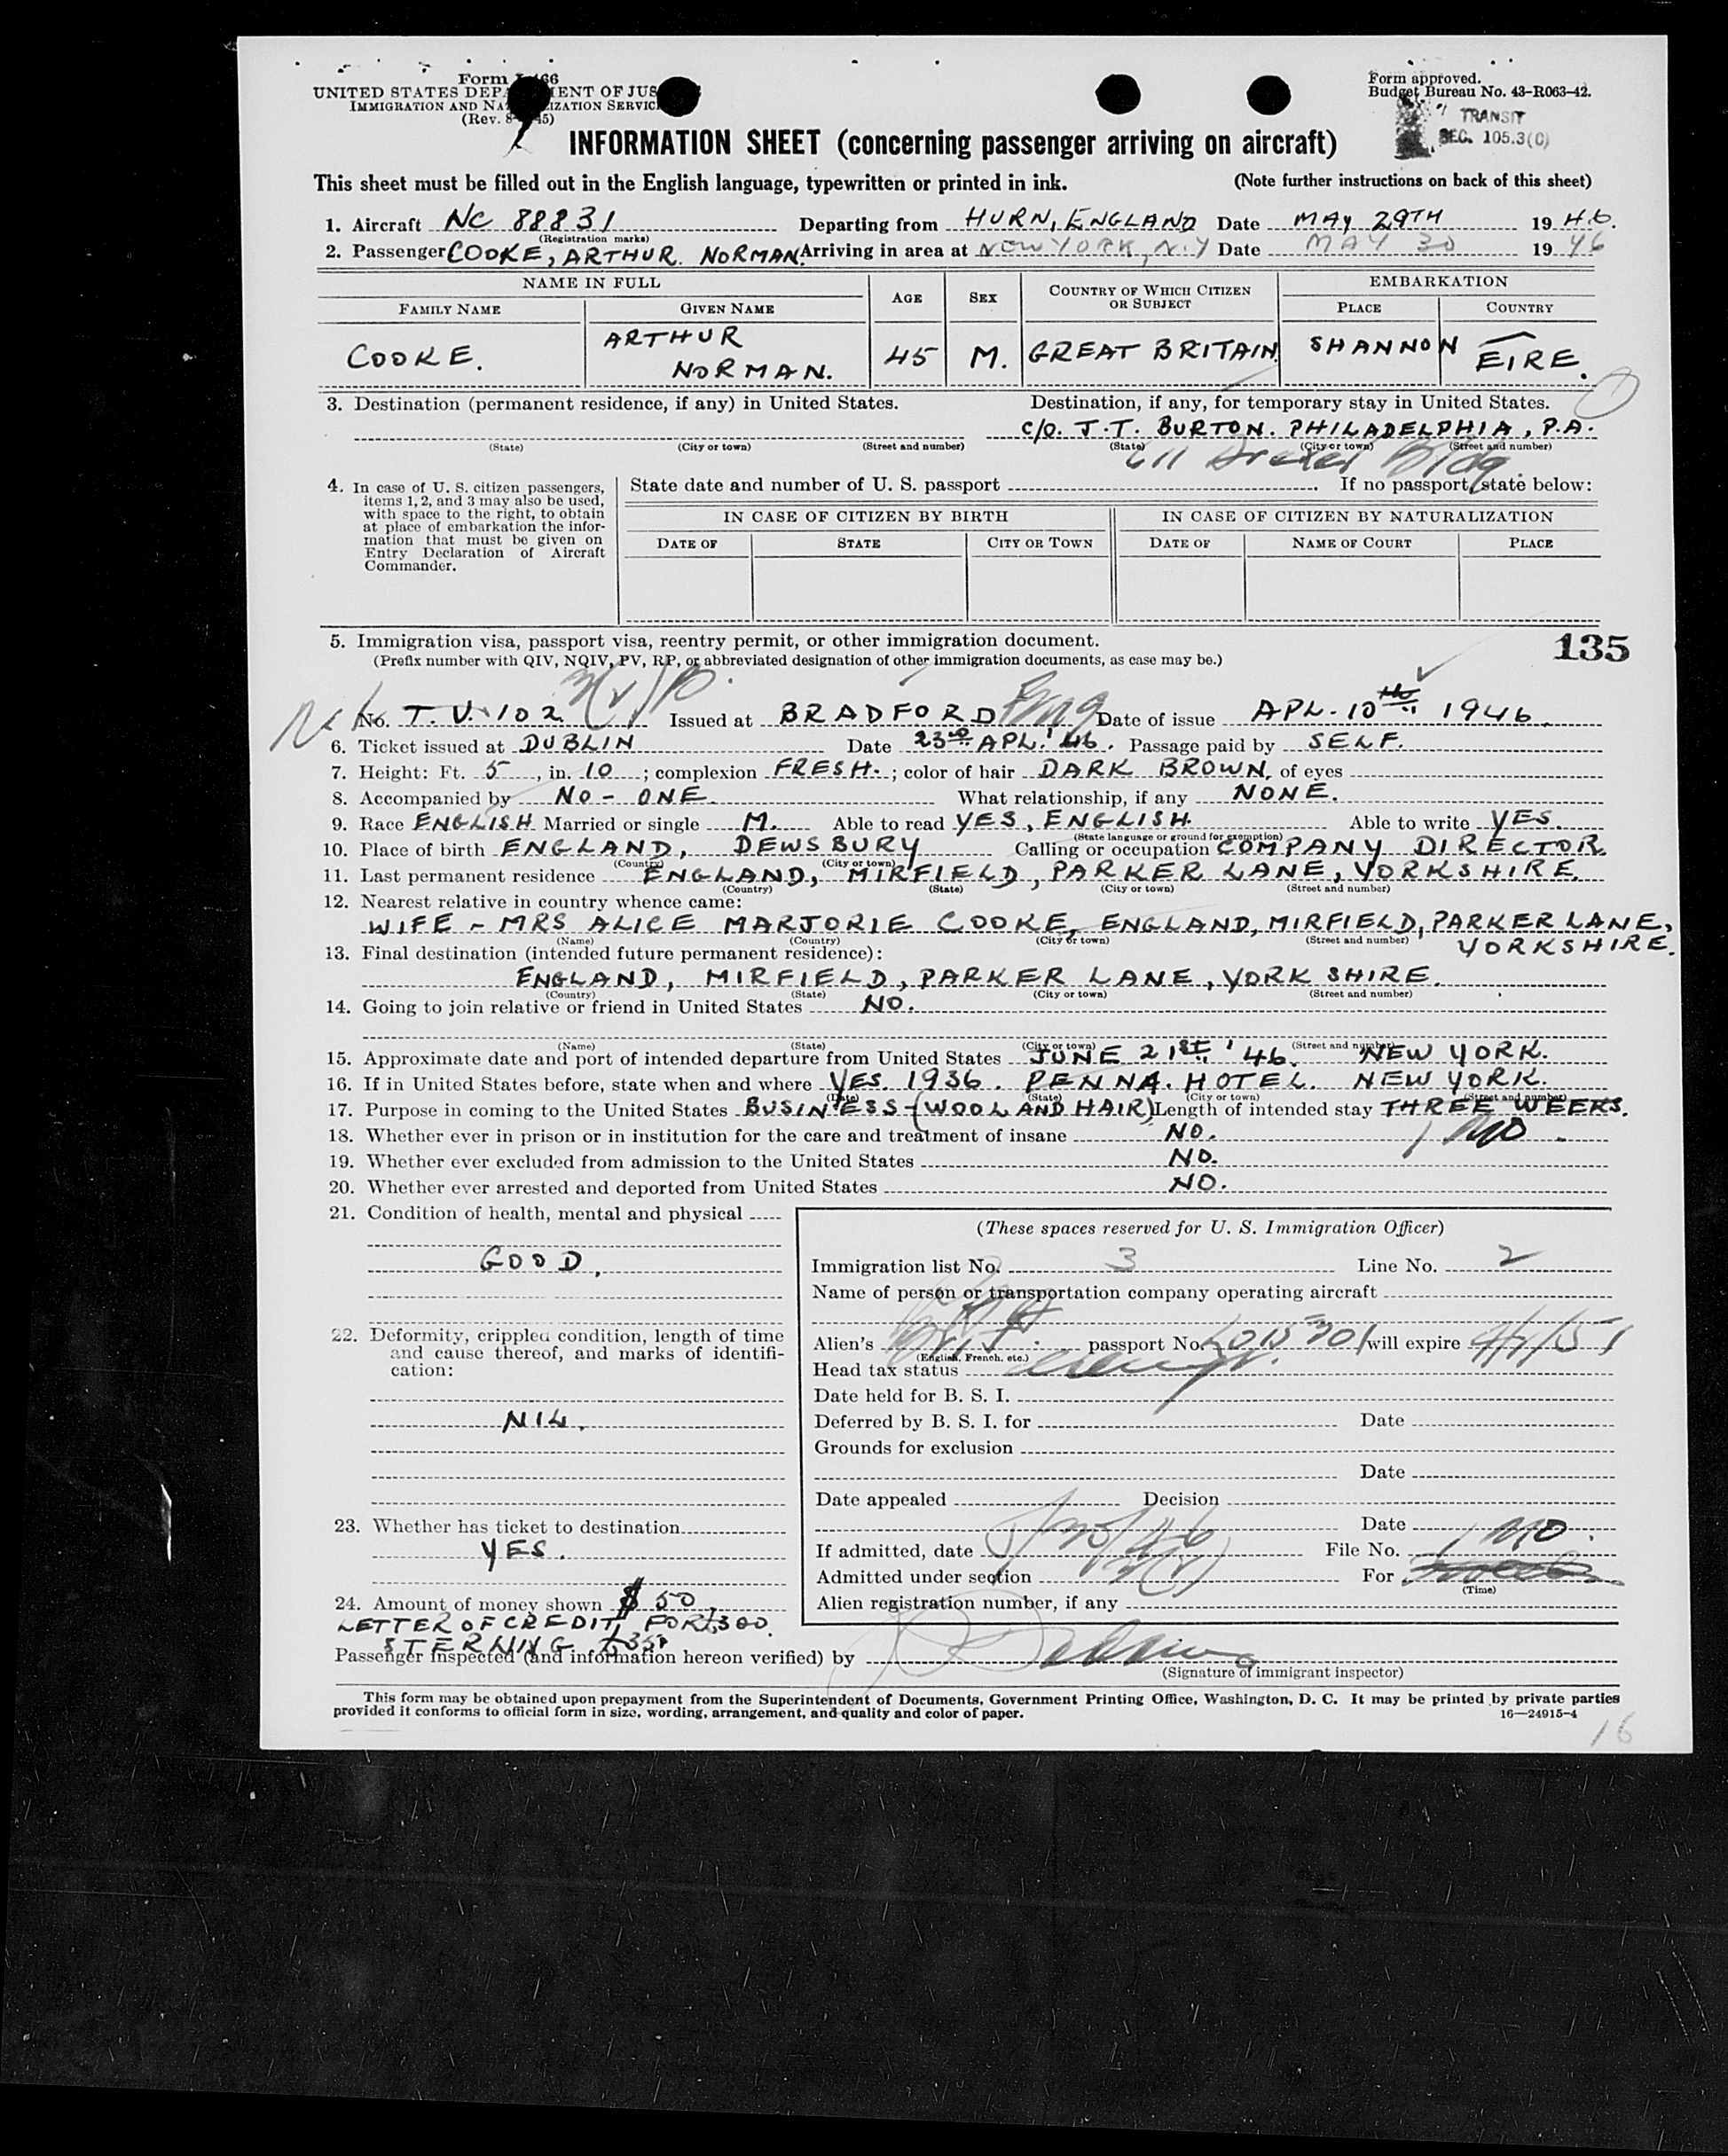 Form I-466
UNITED STATES DEPARTMENT OF JUSTICE
IMMIGRATION AND NATURALIZATION SERVICE
(Rev. 8- -45)
Form approved.
Budget Bureau No. 43-R063-42.
TRANSIT
SEC. 105.3(C)
INFORMATION SHEET (concerning passenger arriving on aircraft)
This sheet must be filled out in the English language, typewritten or printed in ink. (Note further instructions on back of this sheet)
1. Aircraft NC 88831 Departing from HURN, ENGLAND Date MAY 29TH 1946.
(Registration marks)
2. Passenger COOKE, ARTHUR NORMAN. Arriving in area at NEW YORK, N.Y Date MAY 30 1946
NAME IN FULL AGE SEX COUNTRY OF WHICH CITIZEN OR SUBJECT EMBARKATION
FAMILY NAME GIVEN NAME PLACE COUNTRY
COOKE. ARTHUR NORMAN. 45 M. GREAT BRITAIN SHANNON EIRE.
3. Destination (permanent residence, if any) in United States. Destination, if any, for temporary stay in United States.
c/o. J.T. BURTON. PHILADELPHIA, P.A.
(State) (City or town) (Street and number) (State) (City or town) (Street and number)
611 Drexel Bldg.
4. In case of U. S. citizen passengers, items 1, 2, and 3 may also be used, with space to the right, to obtain at place of embarkation the information that must be given on Entry Declaration of Aircraft Commander.
State date and number of U. S. passport If no passport, state below:
IN CASE OF CITIZEN BY BIRTH IN CASE OF CITIZEN BY NATURALIZATION
DATE OF STATE CITY OR TOWN DATE OF NAME OF COURT PLACE
5. Immigration visa, passport visa, reentry permit, or other immigration document. 135
(Prefix number with QIV, NQIV, PV, RP, or abbreviated designation of other immigration documents, as case may be.)
No. T.V. 102 Issued at BRADFORD Eng Date of issue APL. 10th 1946.
6. Ticket issued at DUBLIN Date 23RD APL. '46. Passage paid by SELF.
7. Height: Ft. 5, in. 10; complexion FRESH.; color of hair DARK BROWN, of eyes
8. Accompanied by NO-ONE. What relationship, if any NONE.
9. Race ENGLISH Married or single M. Able to read YES, ENGLISH. Able to write YES.
(State language or ground for exemption)
10. Place of birth ENGLAND, DEWSBURY Calling or occupation COMPANY DIRECTOR.
(Country) (City or town)
11. Last permanent residence ENGLAND, MIRFIELD, PARKER LANE, YORKSHIRE.
(Country) (State) (City or town) (Street and number)
12. Nearest relative in country whence came:
WIFE - MRS ALICE MARJORIE COOKE, ENGLAND, MIRFIELD, PARKER LANE,
(Name) (Country) (City or town) (Street and number) YORKSHIRE.
13. Final destination (intended future permanent residence):
ENGLAND, MIRFIELD, PARKER LANE, YORKSHIRE.
(Country) (State) (City or town) (Street and number)
14. Going to join relative or friend in United States NO.
(Name) (State) (City or town) (Street and number)
15. Approximate date and port of intended departure from United States JUNE 21ST '46. NEW YORK.
16. If in United States before, state when and where YES. 1936. PENNA. HOTEL. NEW YORK.
(Date) (State) (City or town) (Street and number)
17. Purpose in coming to the United States BUSINESS-(WOOL AND HAIR) Length of intended stay THREE WEEKS.
18. Whether ever in prison or in institution for the care and treatment of insane NO. 1 mo.
19. Whether ever excluded from admission to the United States NO.
20. Whether ever arrested and deported from United States NO.
21. Condition of health, mental and physical
GOOD.
22. Deformity, crippled condition, length of time and cause thereof, and marks of identification:
NIL.
23. Whether has ticket to destination
YES.
24. Amount of money shown $50,
LETTER OF CREDIT FOR £300.
STERLING £35.
(These spaces reserved for U. S. Immigration Officer)
Immigration list No. 3 Line No. 2
Name of person or transportation company operating aircraft
Alien's passport No. will expire
(English, French, etc.)
Head tax status
Date held for B. S. I.
Deferred by B. S. I. for Date
Grounds for exclusion
Date
Date appealed Decision
Date
If admitted, date 5/30/46 File No. 1 mo.
Admitted under section 3(2) For
(Time)
Alien registration number, if any
Passenger inspected (and information hereon verified) by
(Signature of immigrant inspector)
This form may be obtained upon prepayment from the Superintendent of Documents, Government Printing Office, Washington, D. C. It may be printed by private parties
provided it conforms to official form in size, wording, arrangement, and quality and color of paper. 16—24915-4
16